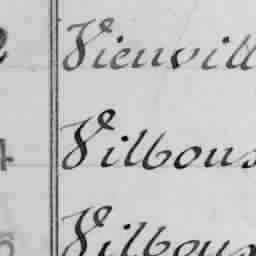 Vienvill
4 Vilbous
Vilbous